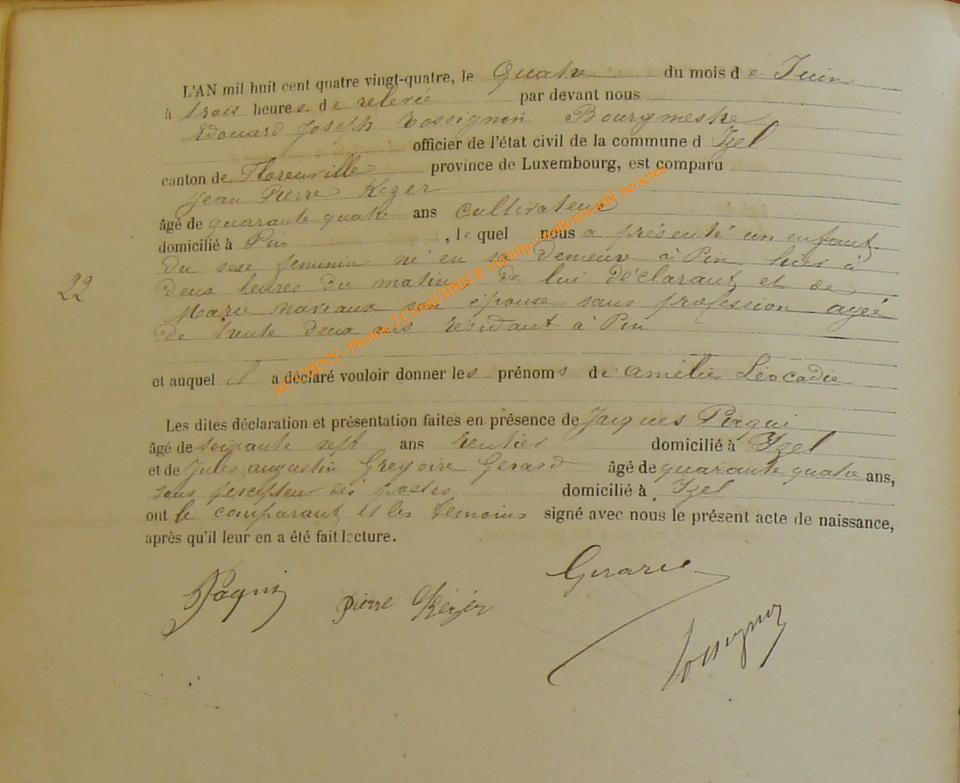 L'AN mil huit cent quatre vingt-quatre, le Quatre du mois de Juin
à trois heures de relevée par devant nous
Edouard Joseph Rossignon Bourgmestre
officier de l'état civil de la commune d Izel
canton de Florenville province de Luxembourg, est comparu
Jean Pierre Kézer
âgé de quarante quatre ans cultivateur
domicilié à Pin , lequel nous a présenté un enfant
22
du sexe feminin né en sa demeure à Pin hier à
deux heures du matin, de lui déclarant et de
Marie son épouse sans profession agée
de trente deux ans résidant à Pin
et auquel il a déclaré vouloir donner les prénoms de Amélie Léocadie
Les dites déclaration et présentation faites en présence de Jacques
âgé de soixante sept ans rentier domicilié à Izel
et de Jules augustin Grégoire Gerard âgé de quarante quatre ans,
sous percepteur des postes domicilié à Izel
ont le comparant et les temoins signé avec nous le présent acte de naissance,
après qu'il leur en a été fait lecture.
Gerard
Pierre Kézér